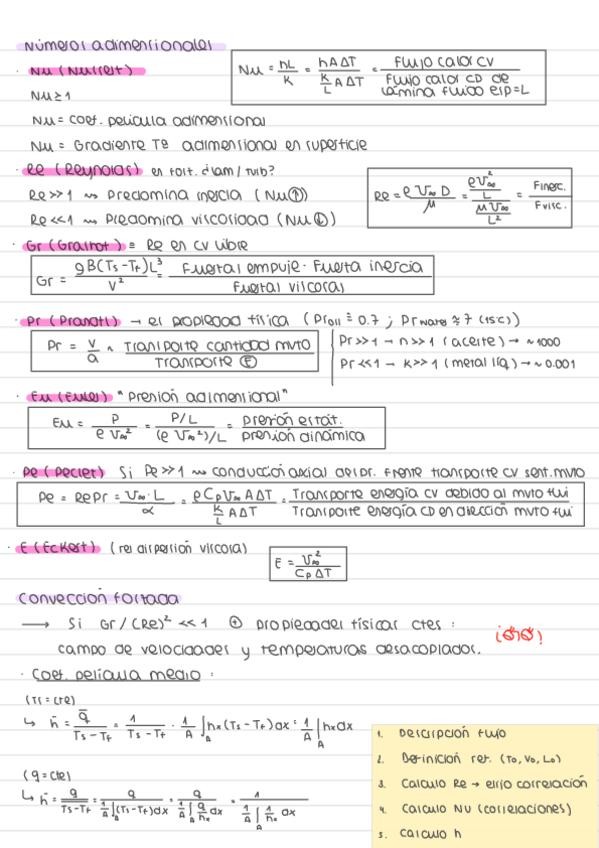 Números adimensionales
· Nu (Nusselt)
Nu = hL/K = hAΔT / (K/L AΔT) = Flujo calor CV / Flujo calor CD de lámina fluido esp=L
Nu ≥ 1
Nu = coef. película adimensional
Nu = Gradiente Tª adimensional en superficie
· Re (Reynolds) en fort. diam/tub?
Re >> 1 ⇝ Predomina inercia (Nu ↑)
Re << 1 ⇝ Predomina viscosidad (Nu ↓)
Re = ρ V∞ D / μ = (ρ V∞² / L) / (μ V∞ / L²) = Finerc. / Fvisc.
· Gr (Grashof) ≡ Re en CV libre
Gr = gB(Ts - Tf)L³ / V² = Fuerzas empuje · Fuerza inercia / Fuerzas viscosas
· Pr (Prandtl) → es propiedad física (Proil ≡ 0.7 ; Prwater ≈ 7 (15ºC)
Pr = v/a ~ Transporte cantidad mvto / Transporte E
Pr >> 1 → n >> 1 (aceite) → ~ 1000
Pr << 1 → K >> 1 (metal líq.) → ~ 0.001
· Eu (Euler) "Presión adimensional"
Eu = P / ρ V∞² = P/L / (ρ V∞²)/L = presión estát. / presión dinámica
· Pe (Peclet) Si Pe >> 1 ⇝ conducción axial despr. frente transporte CV sent. mvto
Pe = Re Pr = V∞ · L / α = ρ Cp V∞ A ΔT / (K/L A ΔT) = Transporte energía CV debido al mvto flui / Transporte energía CD en dirección mvto flui
· E (Eckert) (res dispersión viscosa)
E = V∞² / Cp ΔT
Convección forzada
→ Si Gr/(Re)² << 1 ⊕ propiedades físicas ctes :
campo de velocidades y temperaturas desacoplados.
· Coef. película medio :
(Ts = cte)
↳ h̄ = q̄ / Ts - Tf = 1 / Ts - Tf · 1/A ∫A hx (Ts - Tf) dx = 1/A ∫A hx dx
(q = cte)
↳ h̄ = q / Ts - Tf = q / 1/A ∫A (Ts - Tf) dx = q / 1/A ∫A q/hx dx = 1 / 1/A ∫A 1/hx dx
1. Descripción flujo
2. Definición ref. (To, Vo, Lo)
3. Calculo Re → elijo correlación
4. Calculo NU (correlaciones)
5. Calculo h